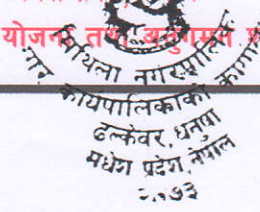 योजना तथा अनुगमन
मिथिला नगरपालिका
नगर कार्यपालिकाको कार्यालय
ढल्केवर, धनुषा
मधेश प्रदेश, नेपाल
२०७३